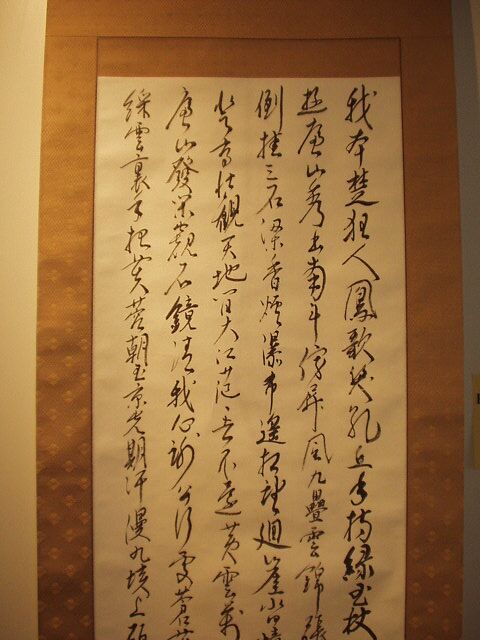 我本楚狂人鳳歌笑孔丘手持綠玉杖
遊廬山秀出南斗傍屏風九疊雲錦張
倒挂三石梁香爐瀑布遙相望迴崖沓嶂
登高壯觀天地間大江茫々去不還黃雲萬
廬山發閑窺石鏡清我心謝公行處蒼苔
綵雲裏手把芙蓉朝玉京先期汗漫九垓上願